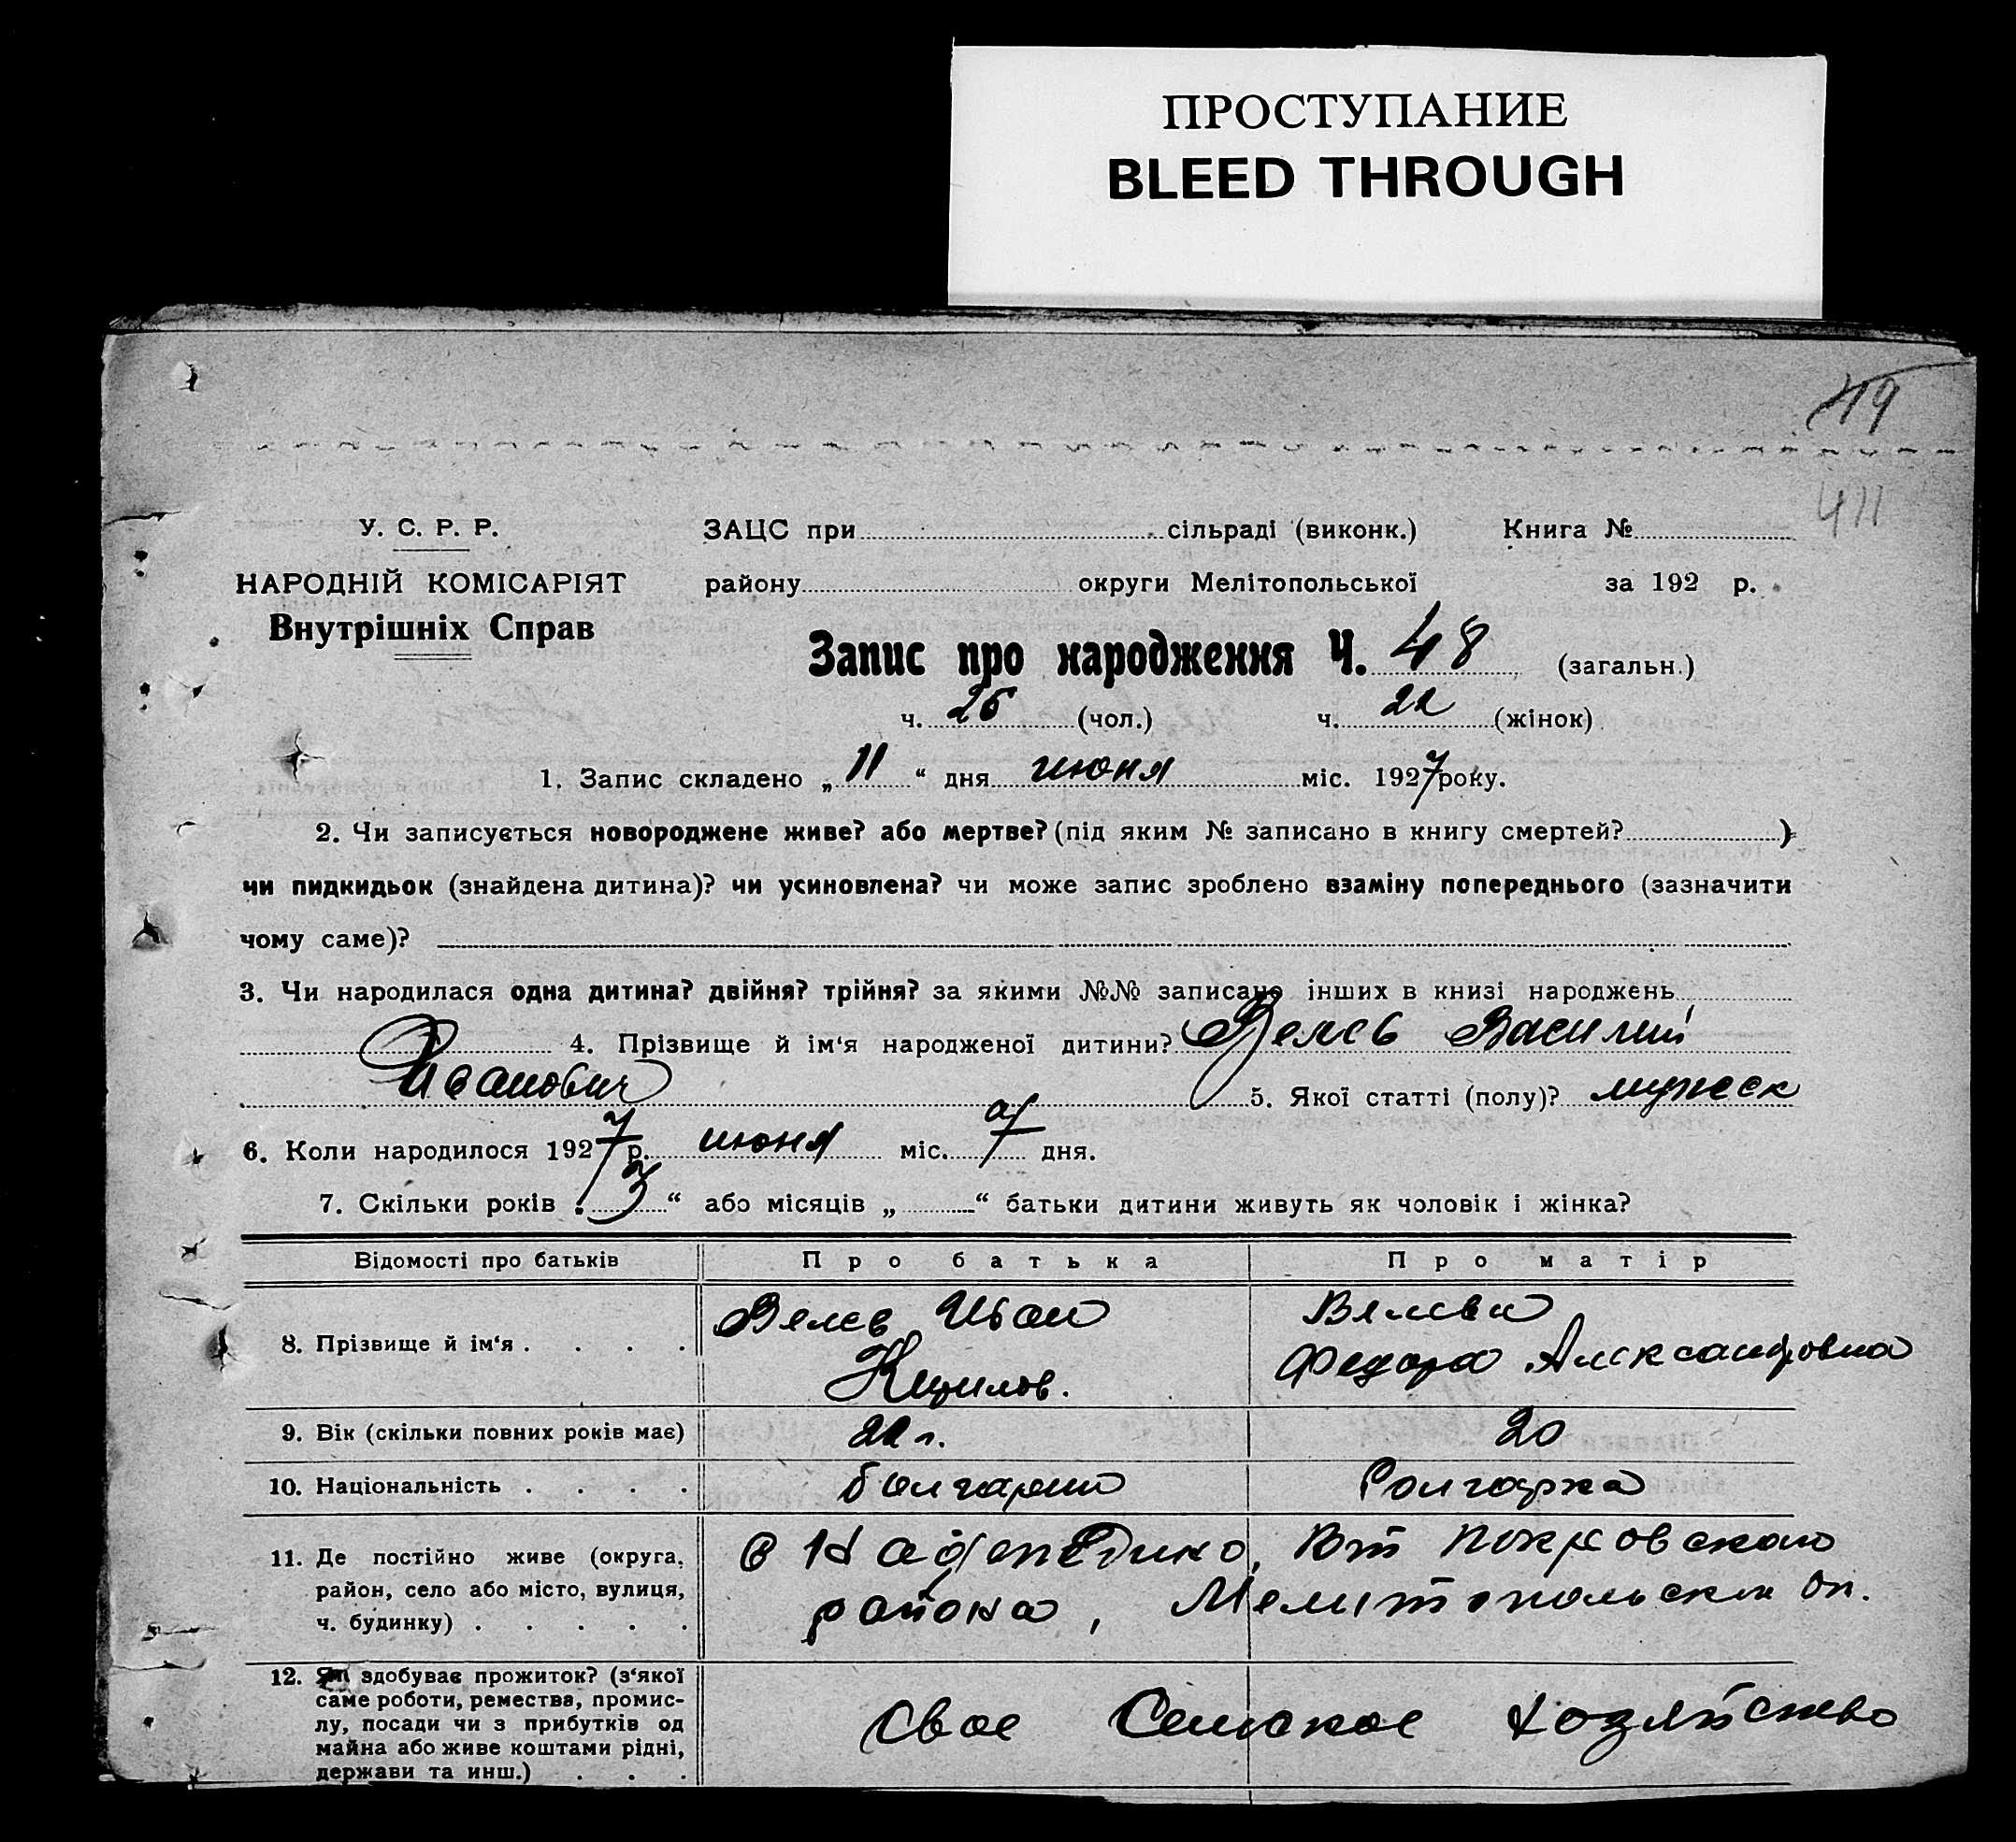 ПРОСТУПАНИЕ
BLEED THROUGH
49
411
У. С. Р. Р.
НАРОДНІЙ КОМІСАРІЯТ
Внутрішніх Справ
ЗАЦС при сільраді (виконк.) Книга №
району округи Мелітопольської за 192 р.
Запис про народження Ч. 48 (загальн.)
ч. 26 (чол.) ч. 22 (жінок)
1. Запис складено „ 11 “ дня июня міс. 1927 року.
2. Чи записується новороджене живе? або мертве? (під яким № записано в книгу смертей? )
чи пидкидьок (знайдена дитина)? чи усиновлена? чи може запис зроблено взаміну попереднього (зазначити
чому саме)?
3. Чи народилася одна дитина? двійня? трійня? за якими №№ записано інших в книзі народжень
4. Прізвище й ім‘я народженої дитини? Велев Василий
Иванович 5. Якої статті (полу)? мужск
6. Коли народилося 1927 р. июня міс. 7 дня.
7. Скільки років „ 3 “ або місяців „ “ батьки дитини живуть як чоловік і жінка?
Відомості про батьків Про батька Про матір
8. Прізвище й ім‘я . . . . Велев Иван Велева
Кирилов. Федора Александровна
9. Вік (скільки повних років має) 22 г. 20
10. Національність . . . . болгарин болгарка
11. Де постійно живе (округа, район, село або місто, вулиця, ч. будинку) . . . . . Покровского
района, Мелитопольской ок.
12. Як здобуває прожиток? (з‘якої
саме роботи, ремества, промис-
лу, посади чи з прибутків од
майна або живе коштами рідні,
держави та инш.) . . .
Свое Сельское хозяйство